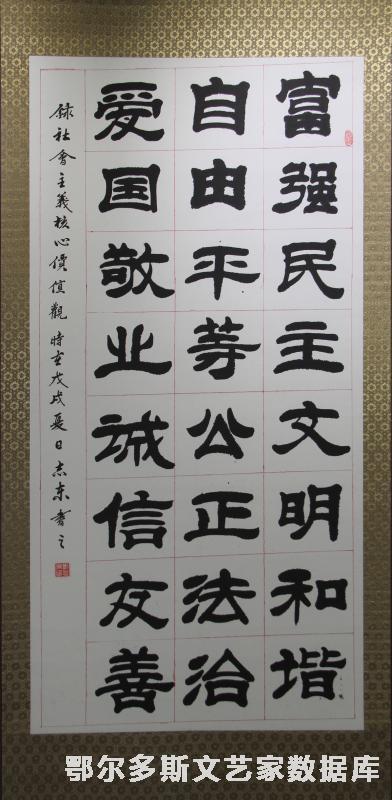 富强民主文明和谐
自由平等公正法治
爱国敬业诚信友善
録社會主義核心價值觀 時在戊戌夏日志东書之
鄂尔多斯文艺家数据库